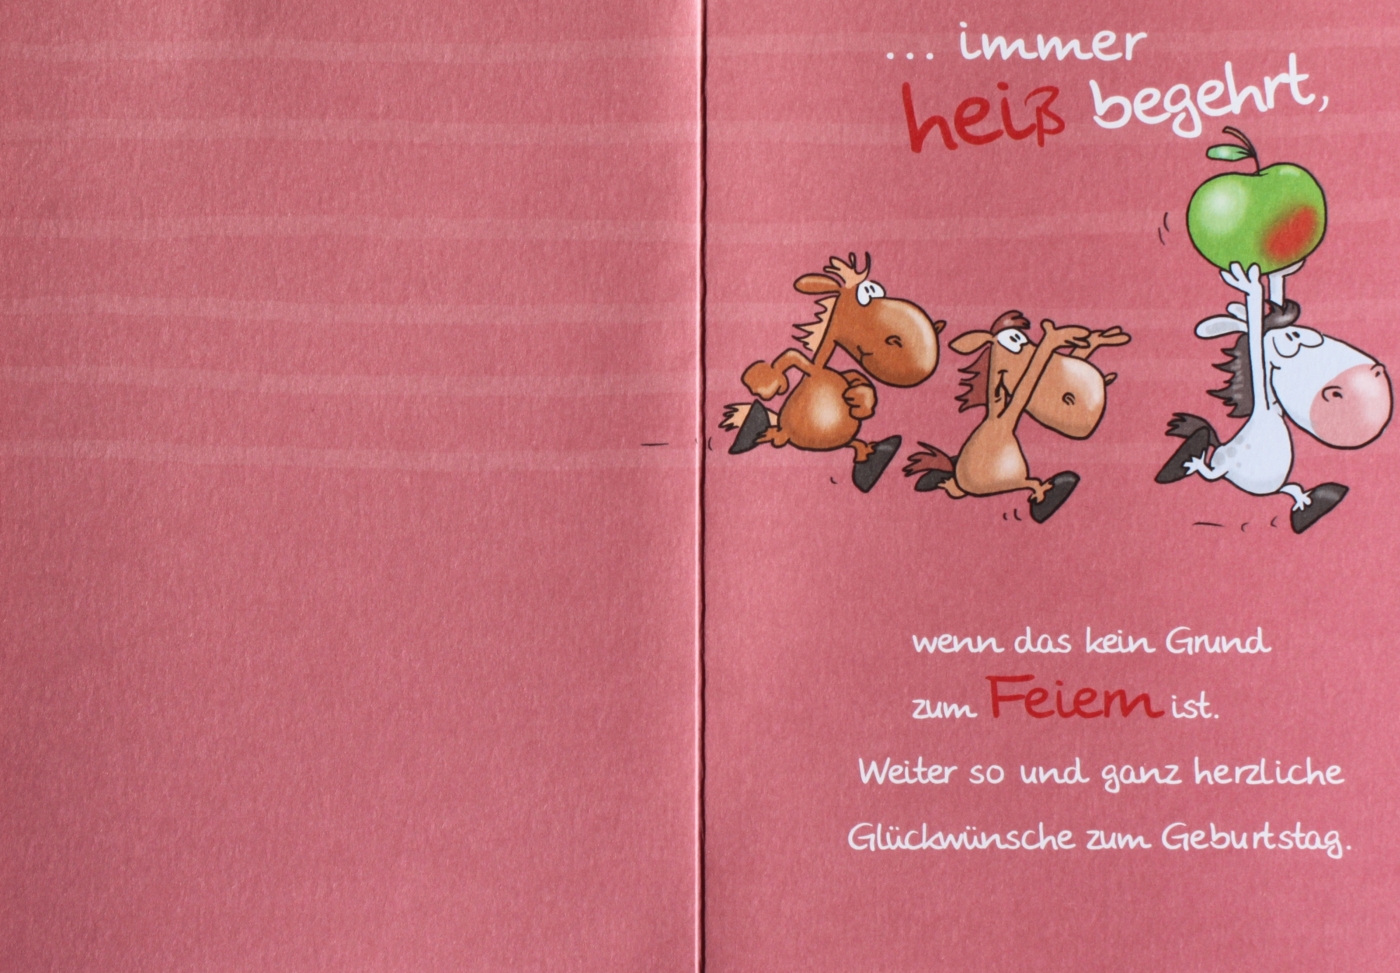 ... immer
heiß begehrt,
wenn das kein Grund
zum Feiern ist.
Weiter so und ganz herzliche
Glückwünsche zum Geburtstag.